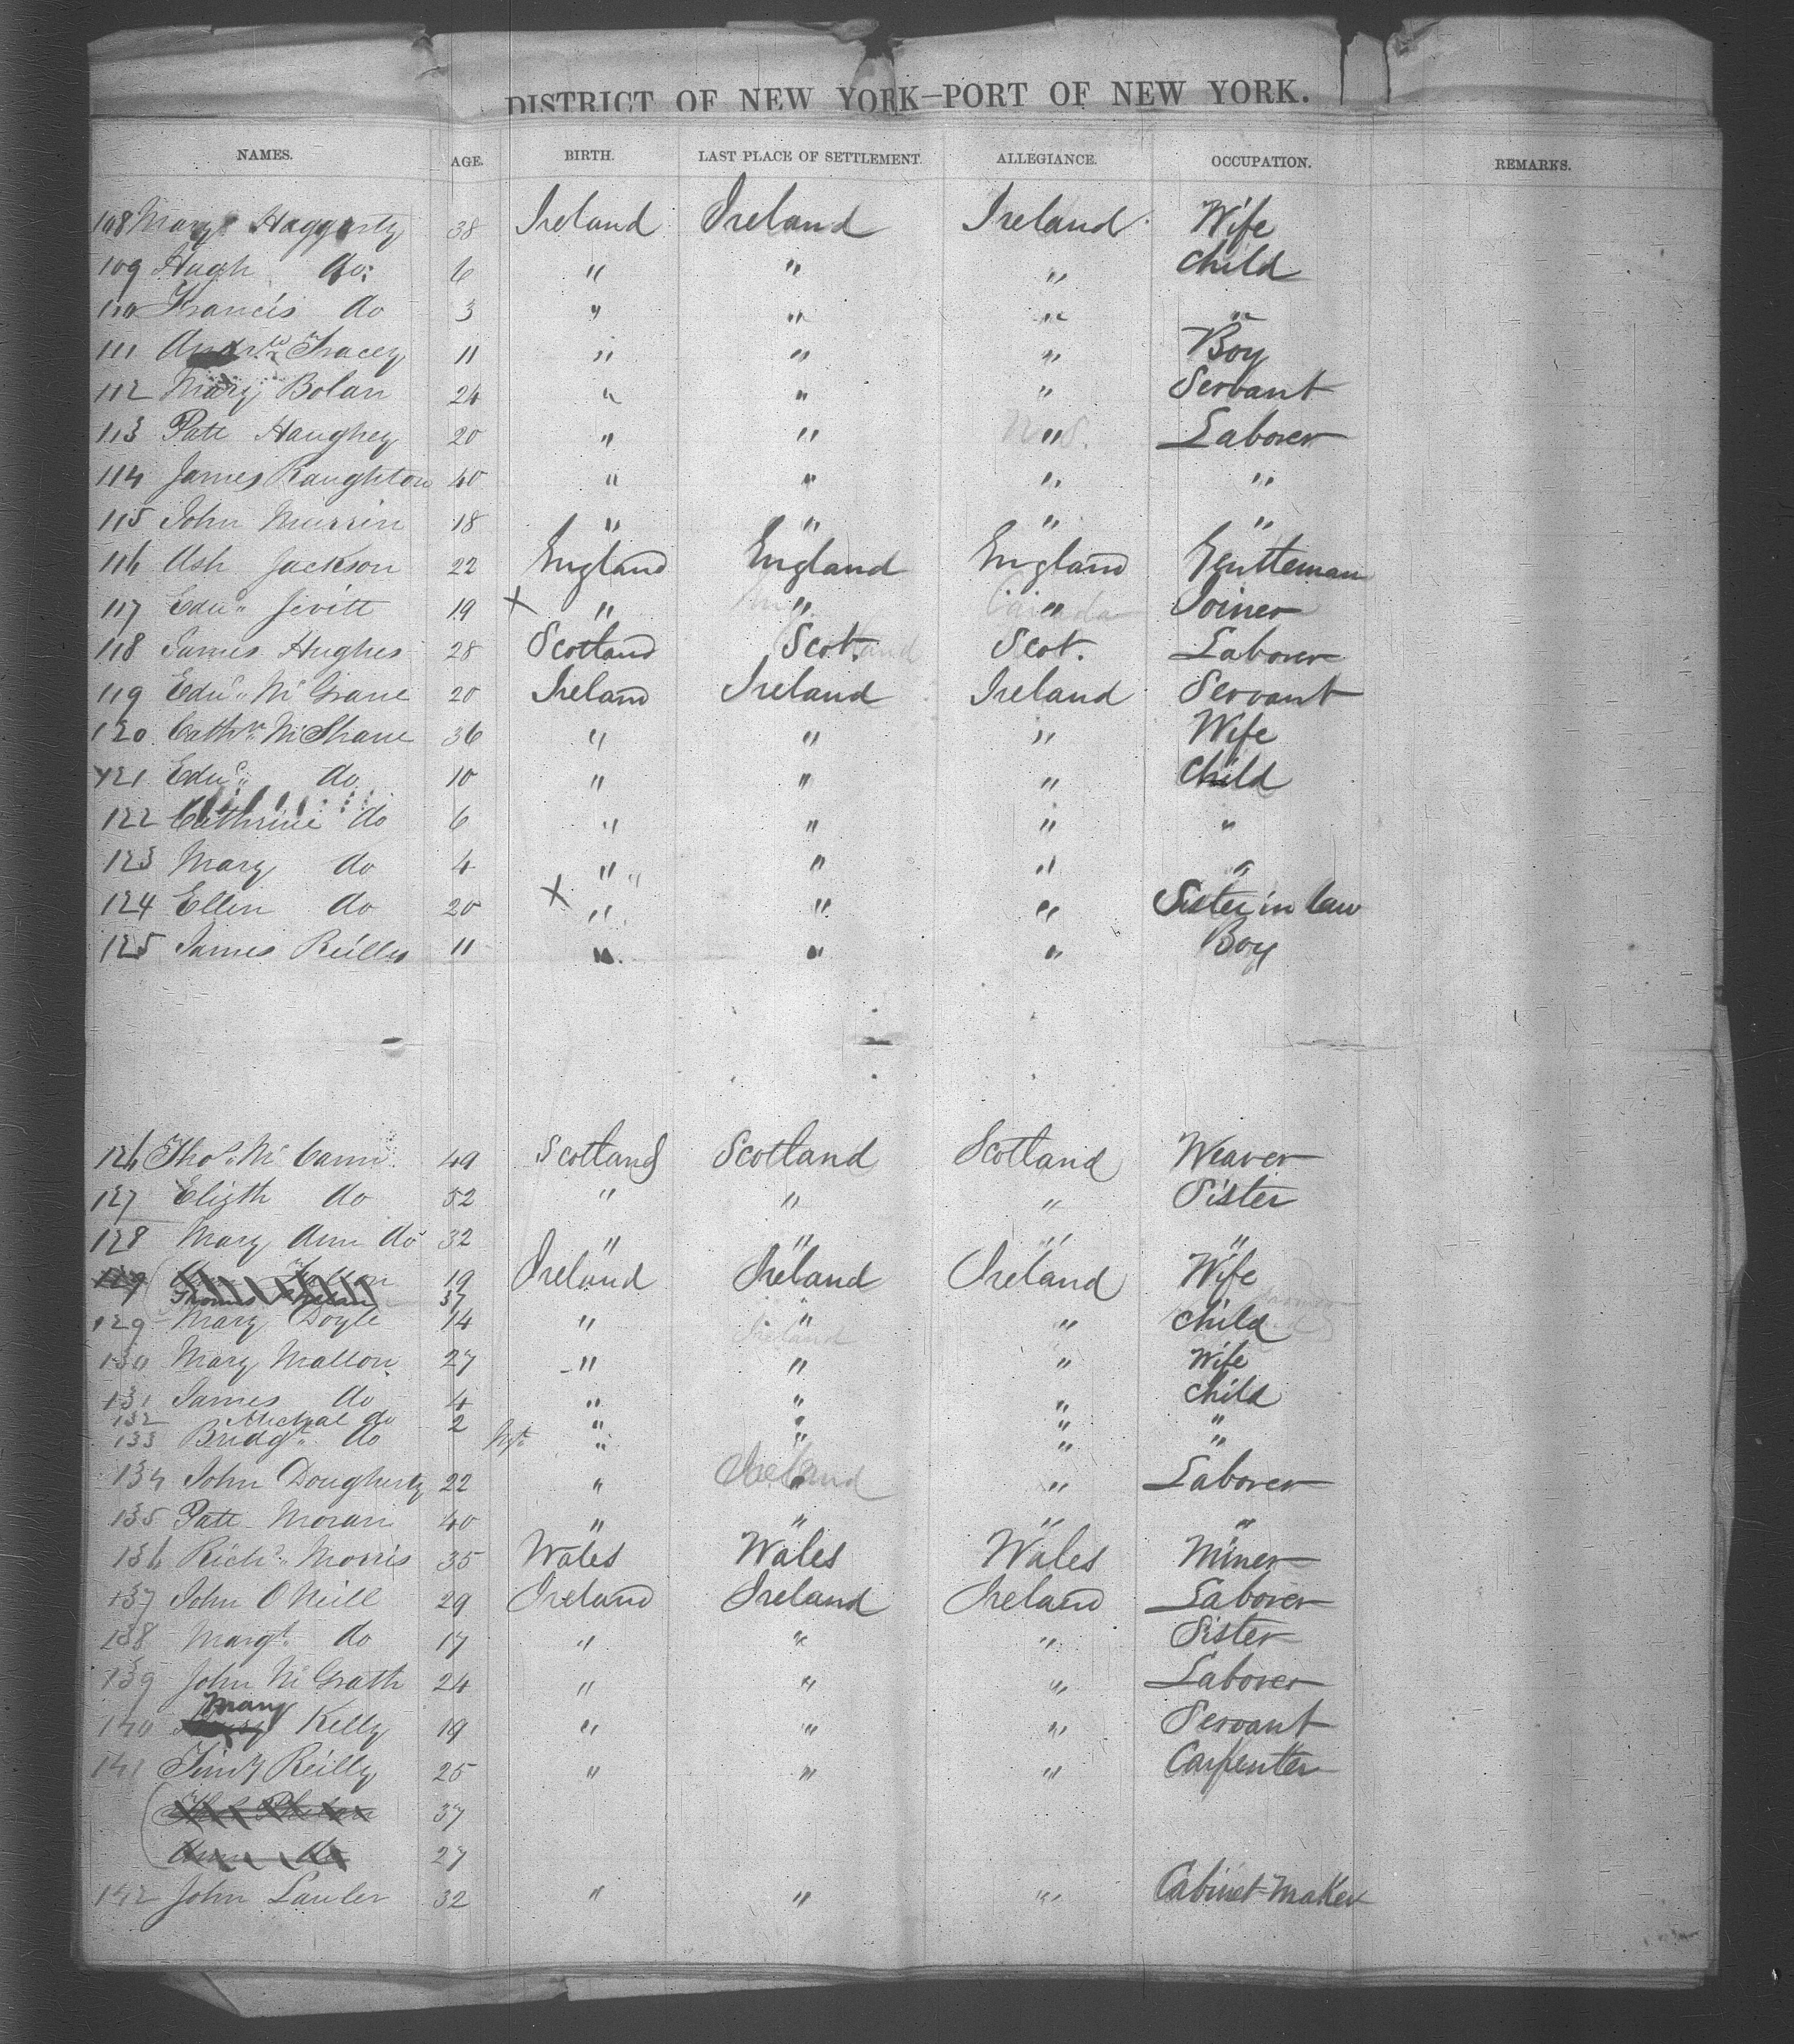 DISTRICT OF NEW YORK—PORT OF NEW YORK.
NAMES. AGE. BIRTH. LAST PLACE OF SETTLEMENT. ALLEGIANCE. OCCUPATION. REMARKS.
108 Mary Haggerty 38 Ireland Ireland Ireland Wife
109 Hugh do: 6 " " " Child
110 Francis do 3 " " " "
111 Andrw Tracey 11 " " " Boy
112 Mary Bolan 24 " " " Servant
113 Patt Haughey 20 " " " Laborer
114 James Raughton 40 " " " "
115 John Murrin 18 " " " "
116 Ash Jackson 22 England England England Gentleman
117 Edwd Jevitt 19 x " " " Joiner
118 James Hughes 28 Scotland Scot. Scot. Laborer
119 Edwd McGrane 20 Ireland Ireland Ireland Servant
120 Cathre McShane 36 " " " Wife
121 Edwd do 10 " " " Child
122 Cathrine do 6 " " " "
123 Mary do 4 " " " "
124 Ellen do 20 x " " " Sister in law
125 James Reilly 11 " " " Boy
126 Thos McCann 49 Scotland Scotland Scotland Weaver
127 Elizth do 52 " " " Sister
128 Mary Ann do 32 " " " "
129 19 Ireland Ireland Ireland Wife
Thomas 37
129 Mary Doyle 14 " " " Child
130 Mary Mallon 27 " " " Wife
131 James do 4 " " " Child
132 Micheal do 2 " " " "
133 Bridgt do Inft " " " "
134 John Dougherty 22 " Ireland " Laborer
135 Patt Moran 40 " " " "
136 Richd Morris 35 Wales Wales Wales Miner
137 John O Neill 29 Ireland Ireland Ireland Laborer
138 Margt do 17 " " " Sister
139 John McGrath 24 " " " Laborer
140 Mary Kelly 19 " " " Servant
141 Timy Reilly 25 " " " Carpenter
37
Ann do 27
142 John Lawler 32 " " " Cabinet Maker